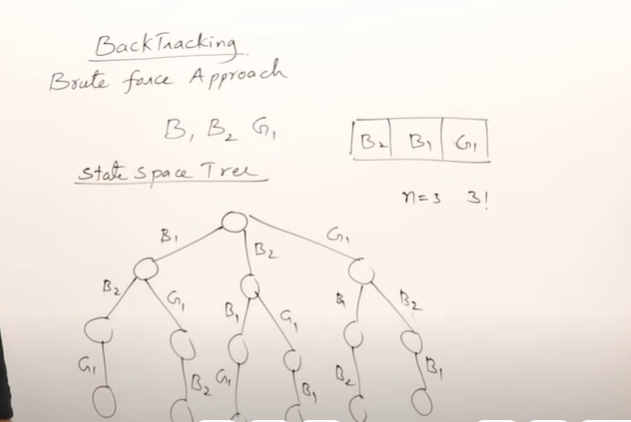 BackTracking
Brute force Approach
B₁ B₂ G₁
B₂ B₁ G₁
State Space Tree
n=3 3!
B₁ B₂ G₁
B₂ G₁ B₁ G₁ B₂
G₁ B₂ G₁ B₁ B₂ B₁